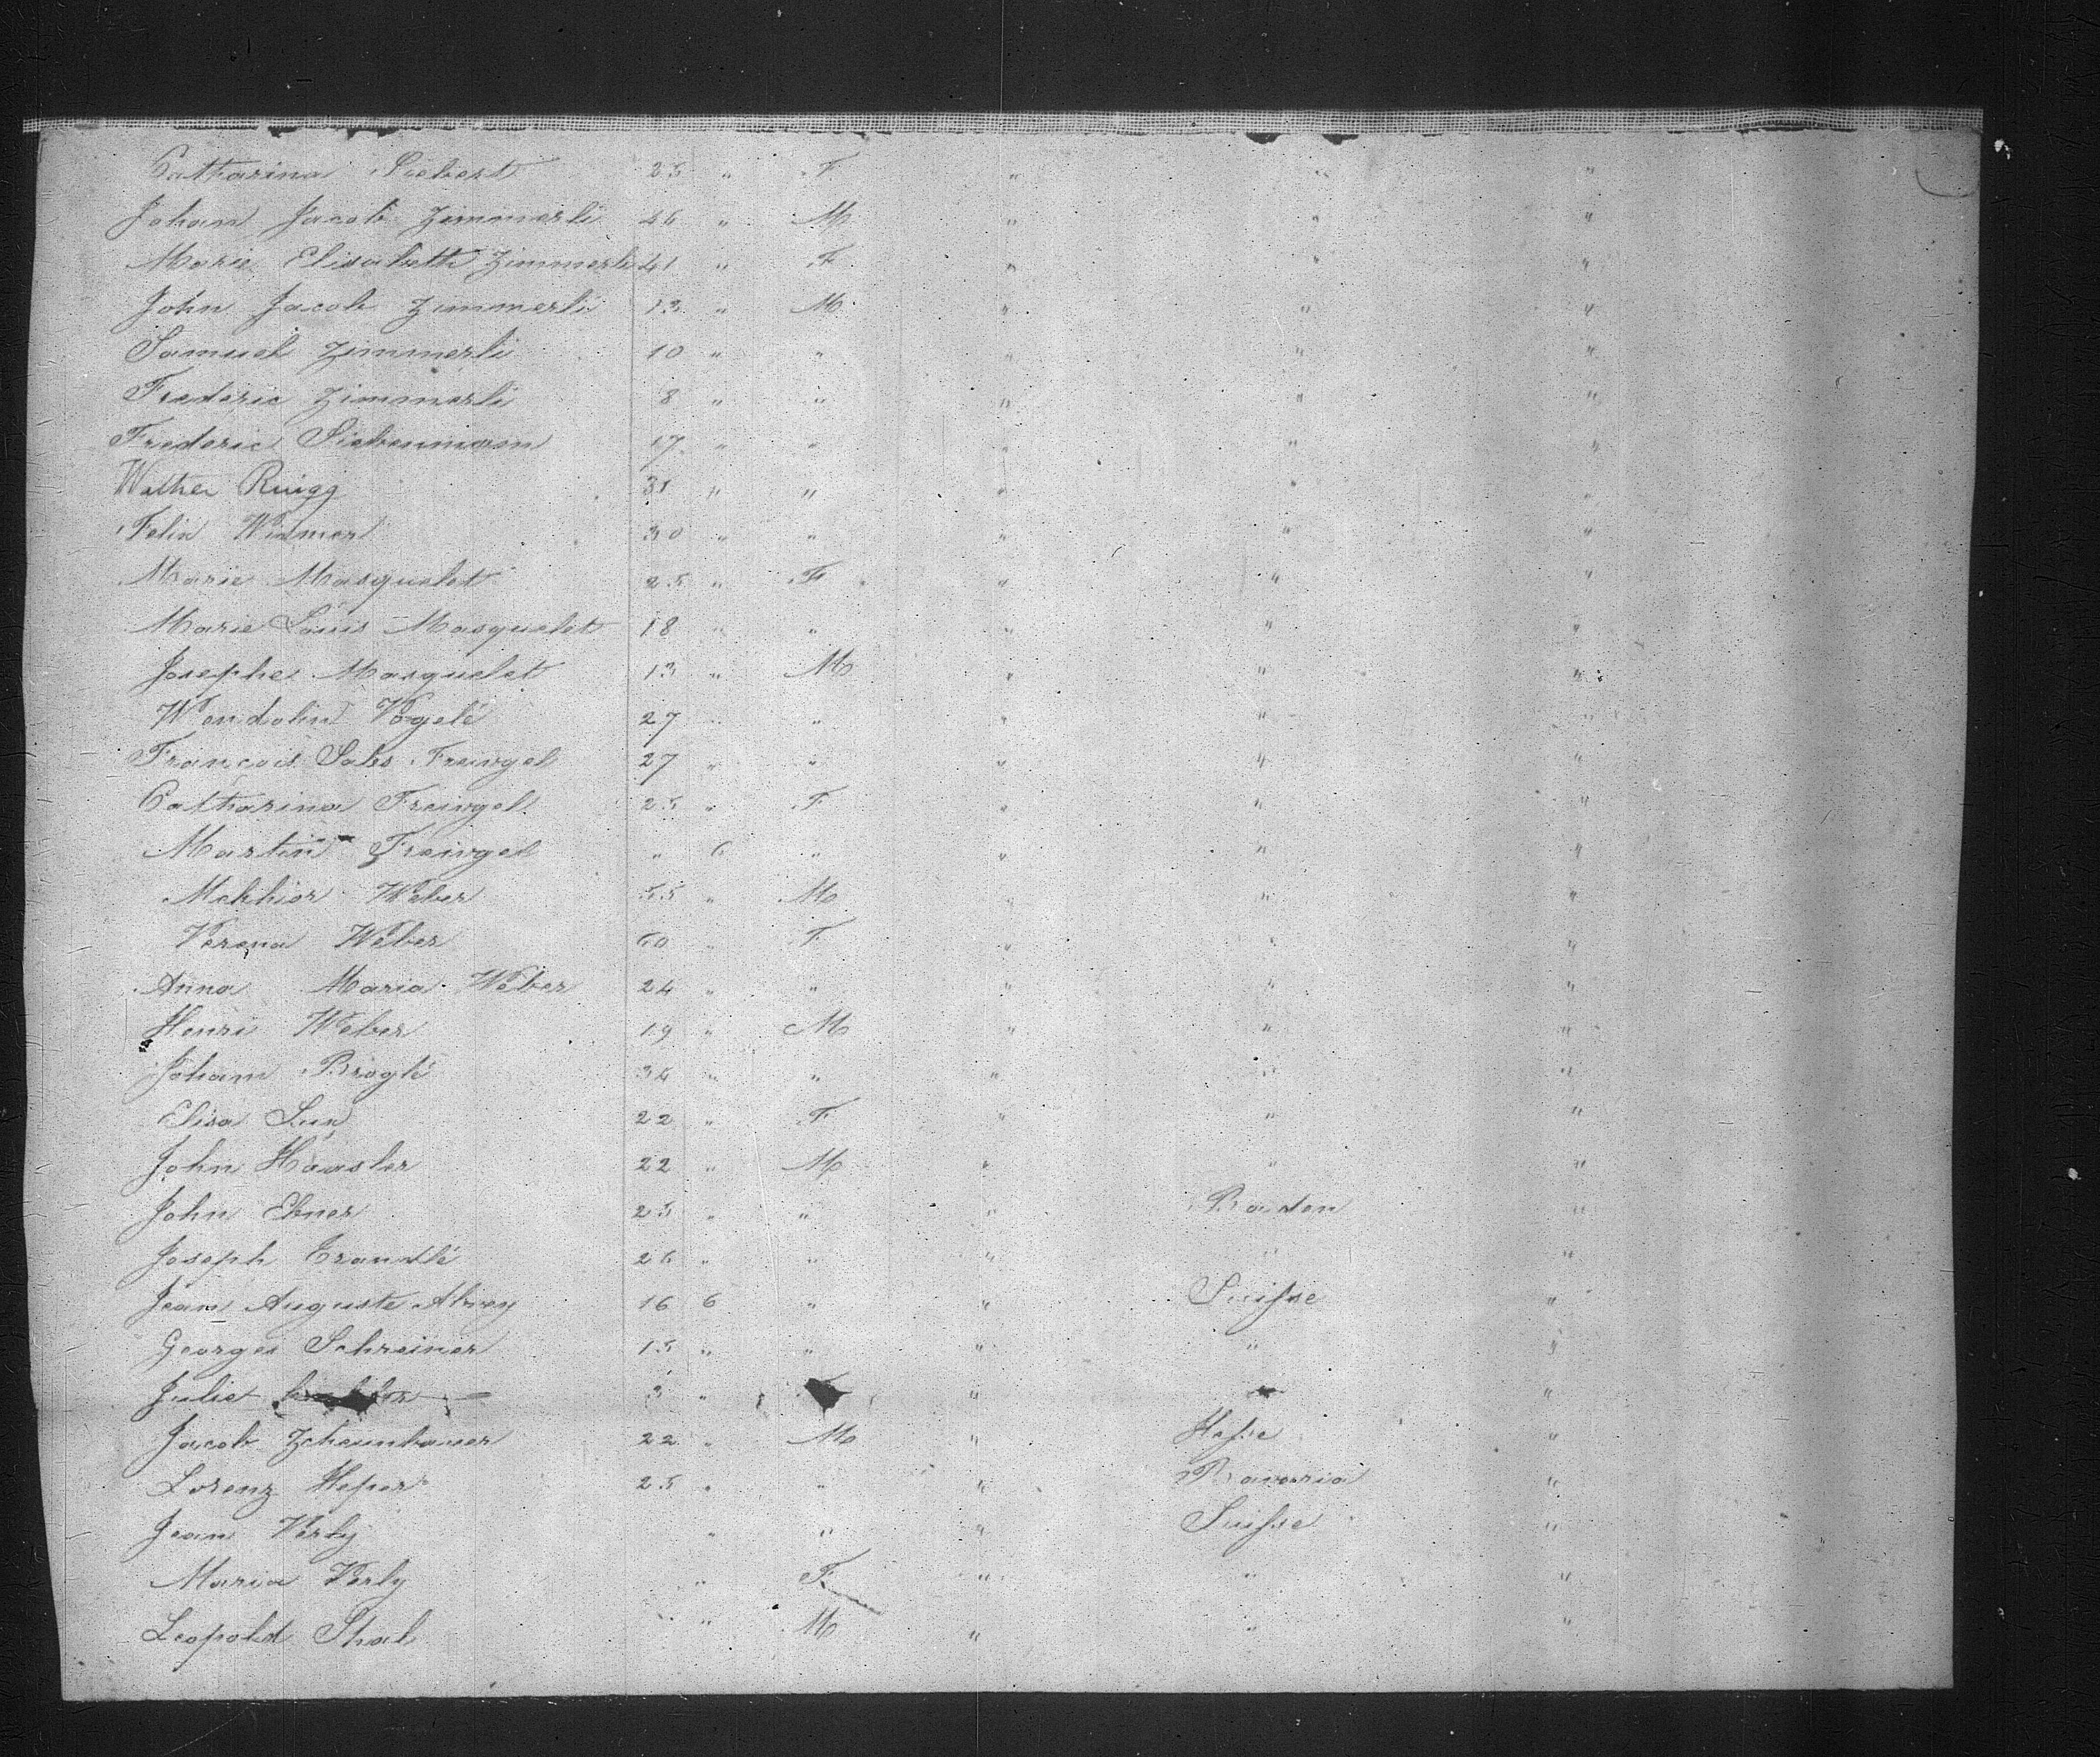 Catharina Siebert 25 " F " " "
Johan Jacob Zimmerli 46 " M " " "
Marie Elisabeth Zimmerli 41 " F " " "
John Jacob Zimmerli 13 " M " " "
Samuel Zimmerli 10 " " " " "
Frederic Zimmerli 8 " " " " "
Frederic Siebenmann 17 " " " " "
Walther Ruigg 31 " " " " "
Felix Widmer 30 " " " " "
Marie Masquelet 25 " F " " "
Marie Louis Masquelet 18 " " " " "
Josephe Masquelet 13 " M " " "
Wendolin Vögelé 27 " " " " "
François Sales Freivgel 27 " " " " "
Catharina Freivgel 25 " F " " "
Martin Freivgel " 6 " " " "
Melchior Weber 55 " M " " "
Verena Weber 60 " F " " "
Anna Maria Weber 24 " " " " "
Henri Weber 19 " M " " "
Joham Broglé 34 " " " " "
Elisa 22 " F " " "
John Haasler 22 " M " " "
John Ebner 25 " " " Baden "
Joseph 26 " " " " "
Jean Auguste 16 6 " " Suisse "
Georges Schreiner 15 " " " " "
Juliet 3 " " "
Jacob 22 " M " Hesse "
Lorenz 25 " " " Bavaria "
Jean Verly " " " Suisse "
Maria Verly " F " " "
Leopold " M " " "